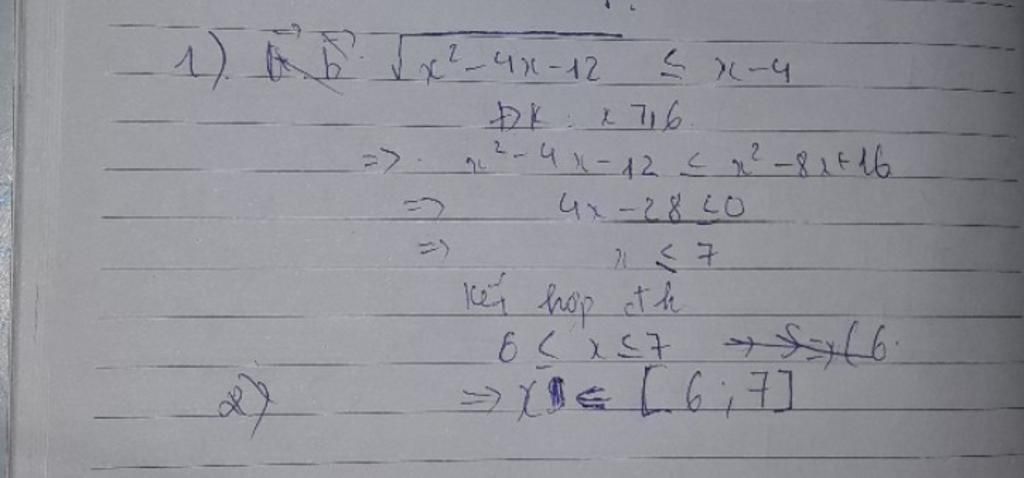 1). √(x² - 4x - 12) ≤ x - 4
ĐK: x ⩾ 6
=> x² - 4x - 12 ≤ x² - 8x + 16
=> 4x - 28 ≤ 0
=> x ≤ 7
Kết hợp đk
6 ≤ x ≤ 7
2) => x ∈ [6; 7]